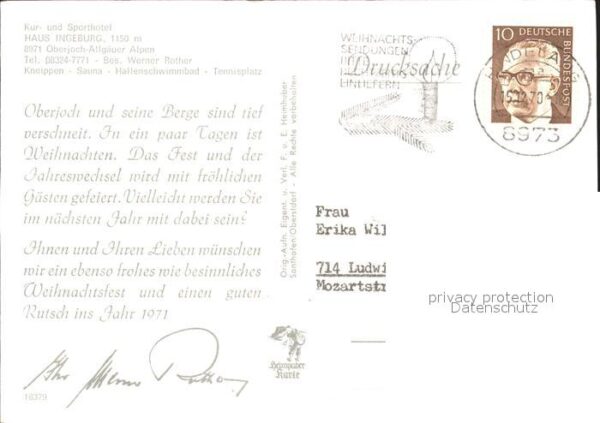 Kur- und Sporthotel
HAUS INGEBURG, 1150 m
8971 Oberjoch-Allgäuer Alpen
Tel. 08324-7771 - Bes. Werner Rother
Kneippen - Sauna - Hallenschwimmbad - Tennisplatz
Oberjoch und seine Berge sind tief
verschneit. In ein paar Tagen ist
Weihnachten. Das Fest und der
Jahreswechsel wird mit fröhlichen
Gästen gefeiert. Vielleicht werden Sie
im nächsten Jahr mit dabei sein?
Ihnen und Ihren Lieben wünschen
wir ein ebenso frohes wie besinnliches
Weihnachtsfest und einen guten
Rutsch ins Jahr 1971
Ihr Werner Rother
16379
Orig.-Aufn. Eigent. u. Verl. F. u. E. Heimhuber
Sonthofen/Oberstdorf - Alle Rechte vorbehalten
Heimhuber
Karte
WEIHNACHTS-
SENDUNGEN
EINLIEFERN
Drucksache
10 DEUTSCHE
BUNDESPOST
HINDELANG
8973
Frau
Erika Wil
714 Ludwi
Mozartstr
privacy protection
Datenschutz